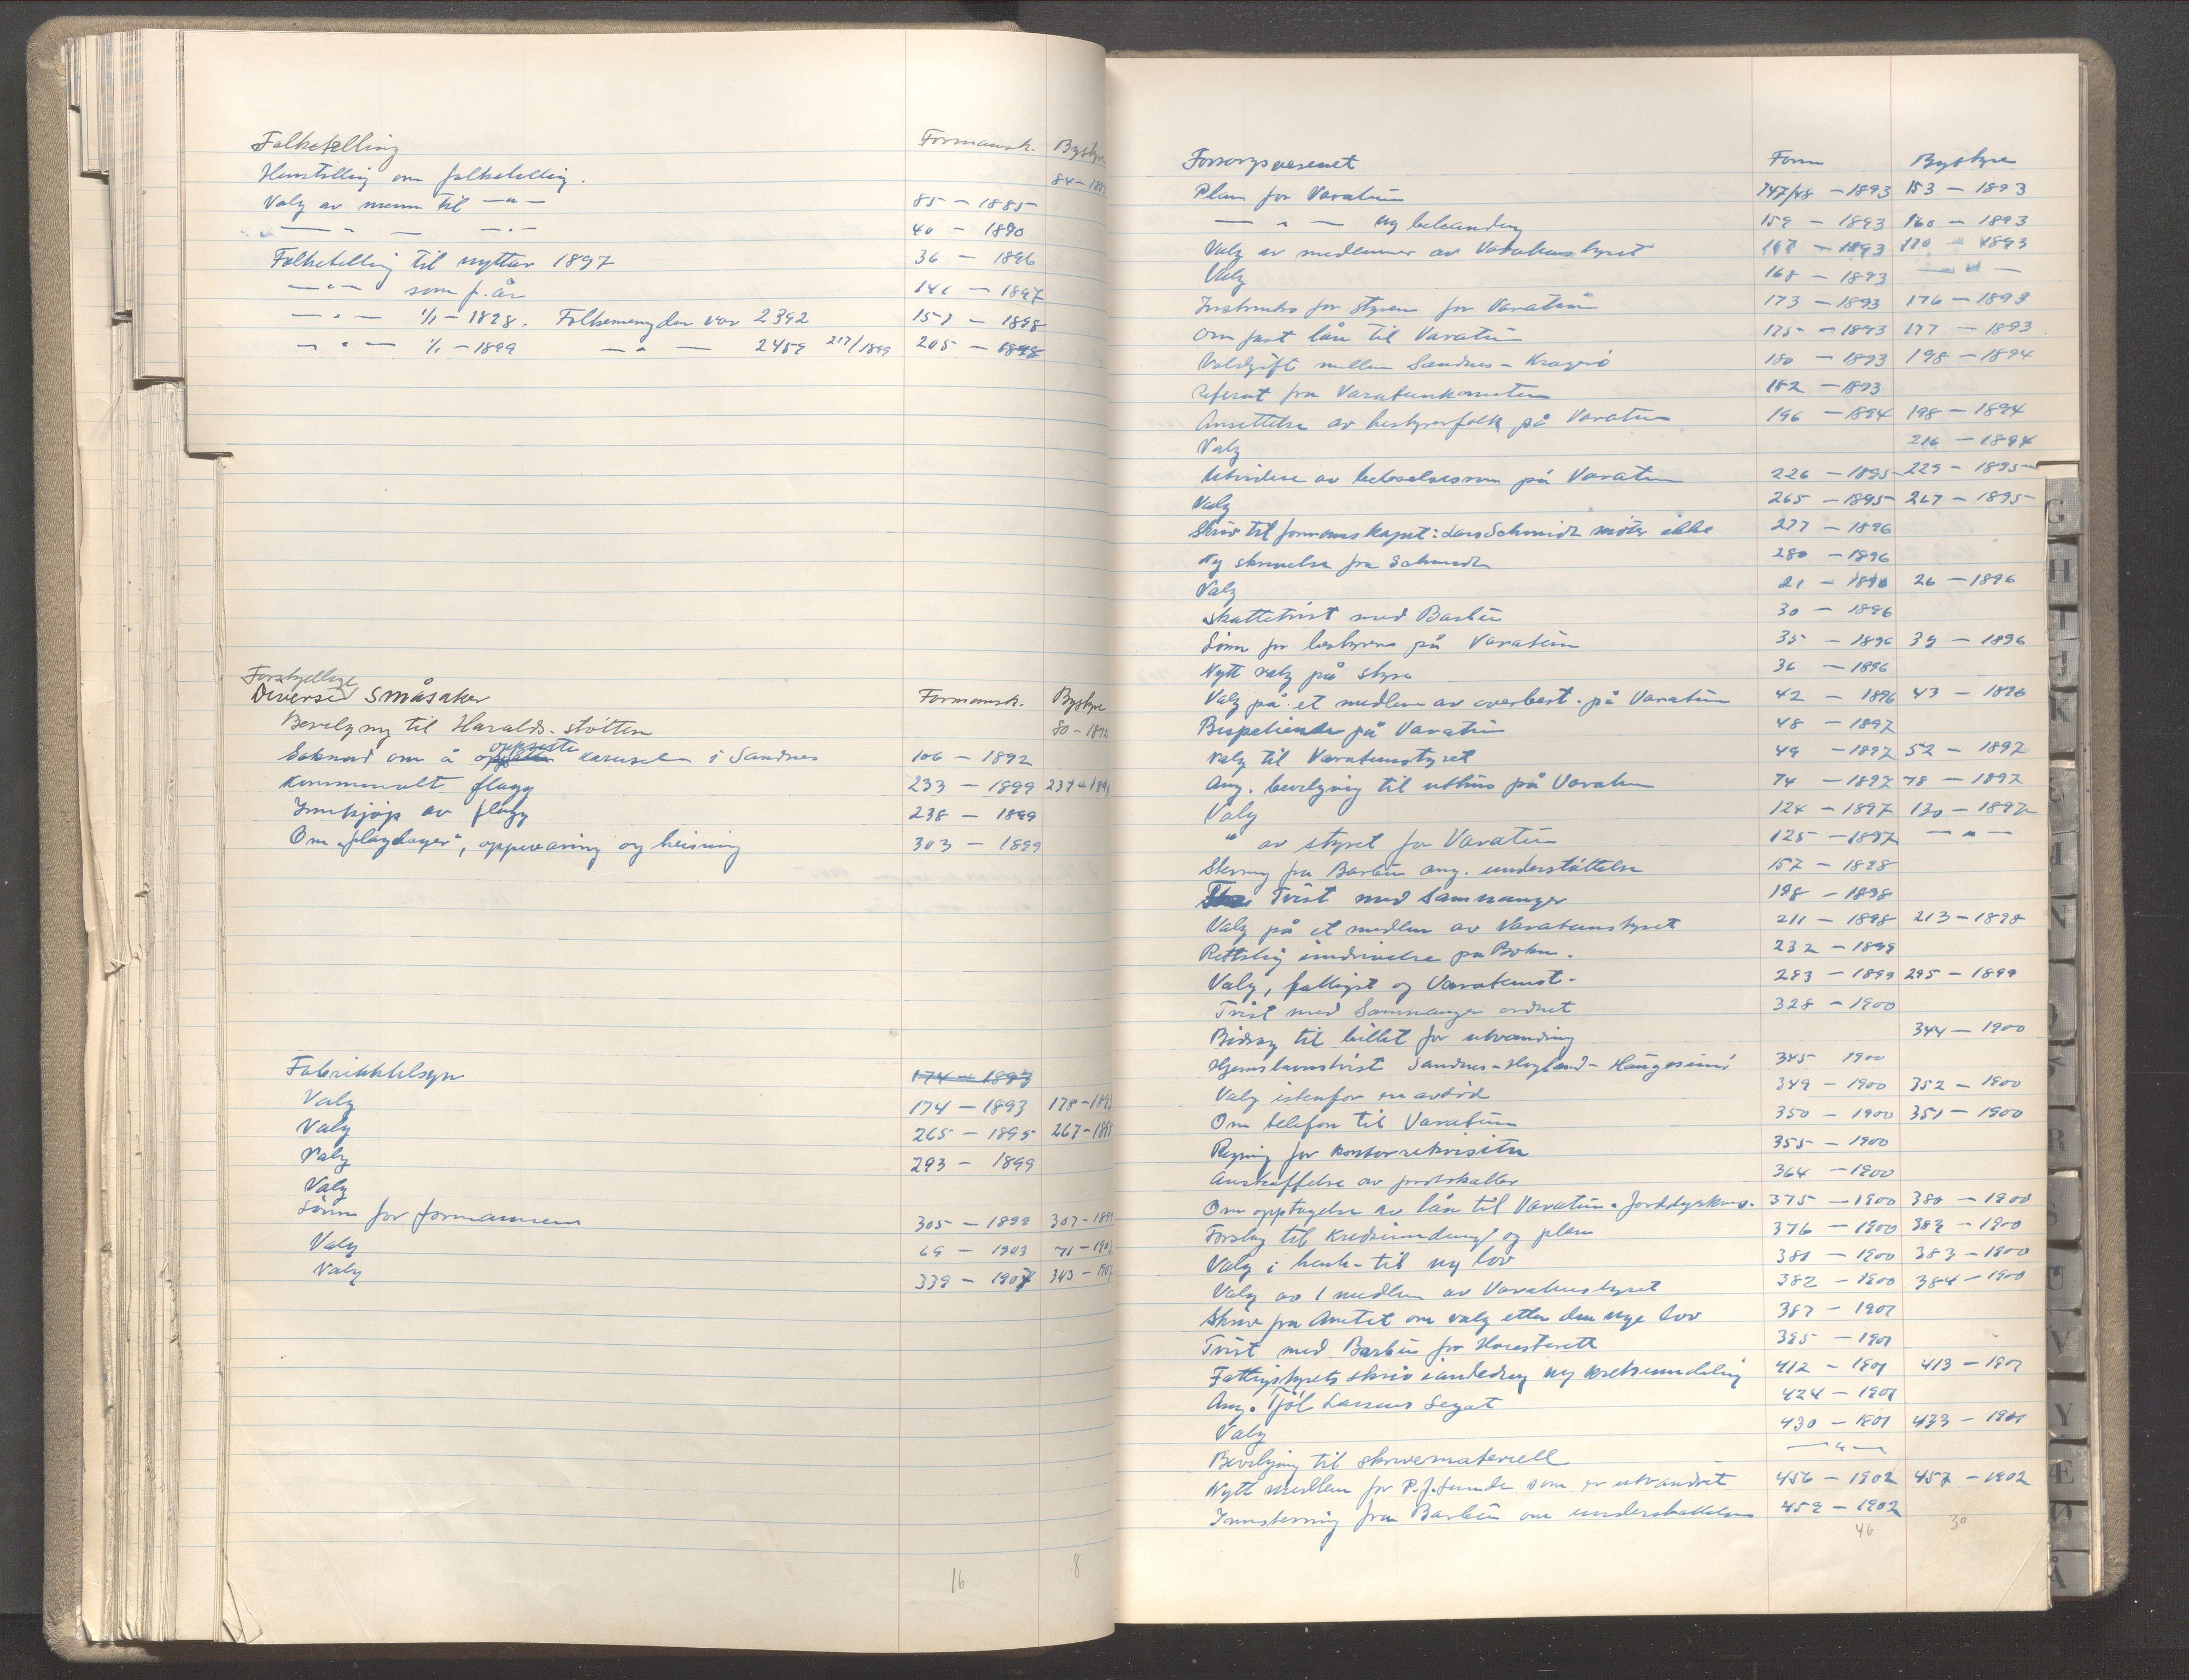 Folketelling Formannsk. Bystyre
Henstilling om folketelling. 84 - 188
Valg av menn til —"— 85 - 1885
—"— —"— 40 - 1890
Folketelling til nyttår 1897 36 - 1896
—"— som f. år 141 - 1897
—"— 1/1 - 1898. Folkemengden var 2392 157 - 1898
—"— 1/1 - 1899 —"— 2459 217/1899 205 - 1898
Forskjellige
Diverse Småsaker Formannsk. Bystyre
Bevilgning til Haralds-støtten 80 - 1872
Søknad om å oppsette karusel i Sandnes 106 - 1892
Kommunalt flagg 233 - 1899 237 - 1899
Innkjøp av flagg 238 - 1899
Om "flagdager", oppevaring og heisning 303 - 1899
Fabrikktilsyn 174 - 1893
Valg 174 - 1893 178 - 1893
Valg 265 - 1895 267 - 1895
Valg 293 - 1899
Valg
Lønn for formannen 305 - 1899 307 - 1899
Valg 69 - 1903 71 - 1903
Valg 339 - 1907 343 - 1907
16 8
Forsorgsvesenet Form Bystyre
Plan for Varatun 147/48 - 1893 153 - 1893
—"— ny behandling 159 - 1893 160 - 1893
Valg av medlemmer av Varatunstyret 167 - 1893 170 - 1893
Valg 168 - 1893 —"—
Instruks for styren for Varatun 173 - 1893 176 - 1893
Om fast lån til Varatun 175 - 1893 177 - 1893
Voldgift mellem Sandnes - Kragerø 180 - 1893 198 - 1894
Referat fra Varatunkomiteen 182 - 1893
Ansettelse av bestyrerfolk på Varatun 196 - 1894 198 - 1894
Valg 216 - 1894
Utvidelse av beboelsesrom på Varatun 226 - 1895 229 - 1895
Valg 265 - 1895 267 - 1895
Skriv til formannskapet: Lars Schmidt møter ikke 277 - 1896
Ny skrivelse fra Schmidt 280 - 1896
Valg 21 - 1896 26 - 1896
Skattetvist med Barbu 30 - 1896
Lønn for bestyrer på Varatun 35 - 1896 39 - 1896
Nytt valg på styre 36 - 1896
Valg på et medlem av overbest. på Varatun 42 - 1896 43 - 1896
på Varatun 48 - 1897
Valg til Varatunstyret 49 - 1897 52 - 1897
Ang. bevilgning til uthus på Varatun 74 - 1897 78 - 1897
Valg 124 - 1897 130 - 1897
" av styret for Varatun 125 - 1897 —"—
Stevning fra Barbu ang. understøttelse 157 - 1898
Tvist med Samnanger 198 - 1898
Valg på et medlem av Varatunstyret 211 - 1898 213 - 1898
Rettslig inndrivelse på Bokn. 232 - 1899
Valg, fattigst og Varatunst. 283 - 1899 295 - 1899
Tvist med Samnanger ordnet 328 - 1900
Bidrag til billet for utvandring 344 - 1900
Hjemstavnstvist Sandnes - Høyland - Haugesund 345 1900
Valg istenfor en avdød 349 - 1900 352 - 1900
Om telefon til Varatun 350 - 1900 351 - 1900
Regning for kontorrekvisita 355 - 1900
Anskaffelse av protokoller 364 - 1900
Om opptagelse av lån til Varatun. Jorddyrkning. 375 - 1900 380 - 1900
Forslag til kredsinndeling og plan 376 - 1900 382 - 1900
Valg i henh. til ny lov 381 - 1900 383 - 1900
Valg av 1 medlem av Varatunstyret 382 - 1900 384 - 1900
Skriv fra Amtet om valg etter den nye lov 387 - 1901
Tvist med Barbu for Høiesterett 395 - 1901
Fattigstyrets skriv i anledning ny kretsinndeling 412 - 1901 413 - 1901
Ang. Tjøl Larsens Legat 424 - 1901
Valg 430 - 1901 433 - 1901
Bevilgning til skrivemateriell —"—
Nytt medlem for P. J. Lunde som er utvandret 456 - 1902 457 - 1902
Innstevning fra Barbu om understøttelse 459 - 1902
46 30
G
H
I
J
K
N
R
S
U
V
Y
Æ
Ø
Å